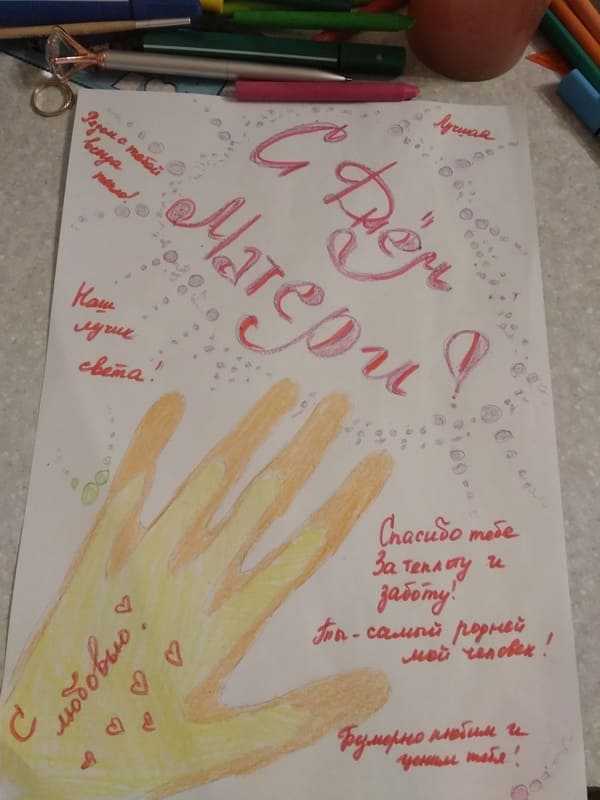 С Днём
Матери!
Лучшая
Рядом с тобой
всегда
тепло!
Наш
лучик
света!
Спасибо тебе
За теплоту и
заботу!
Ты - самый родной
мой человек!
Безмерно любим и
ценим тебя!
С любовью.